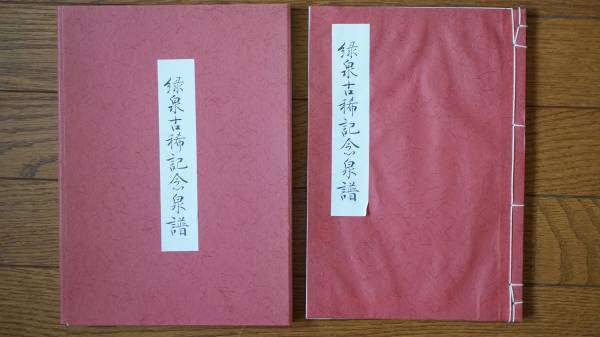 緑泉古稀記念泉譜
緑泉古稀記念泉譜